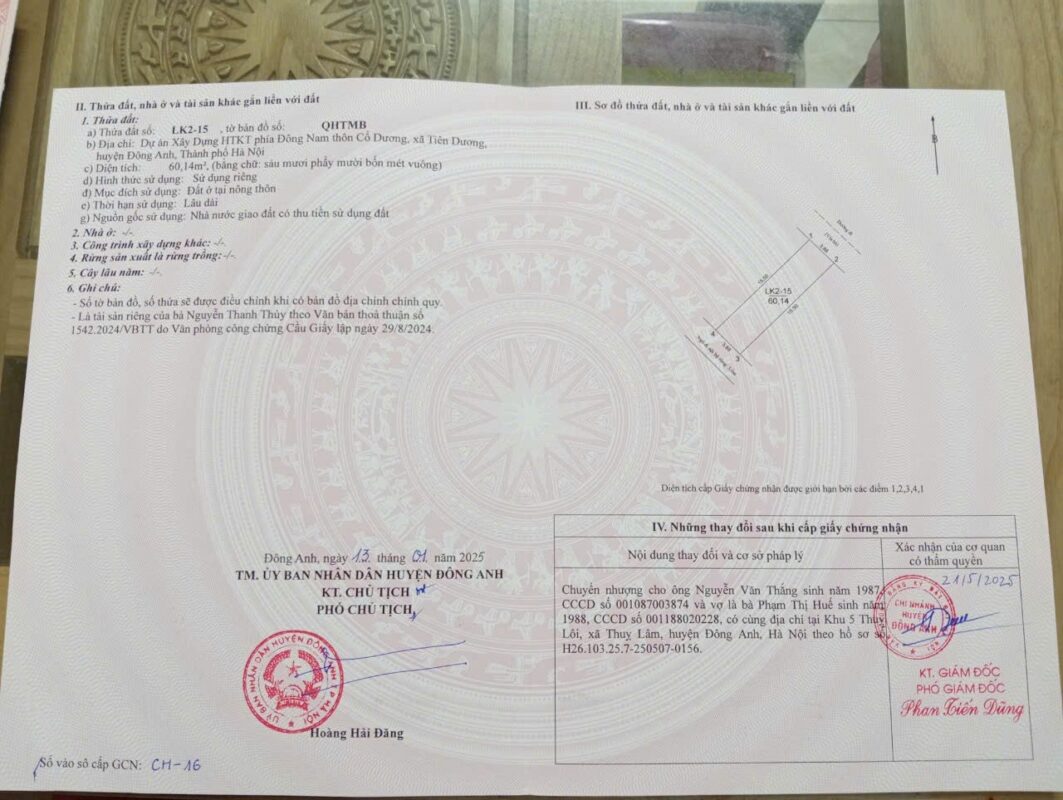 II. Thửa đất, nhà ở và tài sản khác gắn liền với đất
1. Thửa đất:
a) Thửa đất số: LK2-15 , tờ bản đồ số: QHTMB
b) Địa chỉ: Dự án Xây Dựng HTKT phía Đông Nam thôn Cổ Dương, xã Tiên Dương,
huyện Đông Anh, Thành phố Hà Nội
c) Diện tích: 60,14m², (bằng chữ: sáu mươi phẩy mười bốn mét vuông)
d) Hình thức sử dụng: Sử dụng riêng
đ) Mục đích sử dụng: Đất ở tại nông thôn
e) Thời hạn sử dụng: Lâu dài
g) Nguồn gốc sử dụng: Nhà nước giao đất có thu tiền sử dụng đất
2. Nhà ở: -/-
3. Công trình xây dựng khác: -/-
4. Rừng sản xuất là rừng trồng: -/-.
5. Cây lâu năm: -/-.
6. Ghi chú:
- Số tờ bản đồ, số thửa sẽ được điều chỉnh khi có bản đồ địa chính chính quy.
- Là tài sản riêng của bà Nguyễn Thanh Thủy theo Văn bản thoả thuận số
1542.2024/VBTT do Văn phòng công chứng Cầu Giấy lập ngày 29/8/2024.
Đông Anh, ngày 13 tháng 01 năm 2025
TM. ỦY BAN NHÂN DÂN HUYỆN ĐÔNG ANH
KT. CHỦ TỊCH
PHÓ CHỦ TỊCH
ỦY BAN NHÂN DÂN HUYỆN ĐÔNG ANH
Hoàng Hải Đăng
Số vào sổ cấp GCN: CH-16
III. Sơ đồ thửa đất, nhà ở và tài sản khác gắn liền với đất
B
1
2
LK2-15
60,14
4
3
Diện tích cấp Giấy chứng nhận được giới hạn bởi các điểm 1,2,3,4,1
IV. Những thay đổi sau khi cấp giấy chứng nhận
Nội dung thay đổi và cơ sở pháp lý
Xác nhận của cơ quan
có thẩm quyền
Chuyển nhượng cho ông Nguyễn Văn Thắng sinh năm 1987,
CCCD số 001087003874 và vợ là bà Phạm Thị Huế sinh năm
1988, CCCD số 001188020228, có cùng địa chỉ tại Khu 5 Thuỵ
Lôi, xã Thuỵ Lâm, huyện Đông Anh, Hà Nội theo hồ sơ số
H26.103.25.7-250507-0156.
21/5/2025
CHI NHÁNH
HUYỆN
ĐÔNG ANH
KT. GIÁM ĐỐC
PHÓ GIÁM ĐỐC
Phan Tiến Dũng